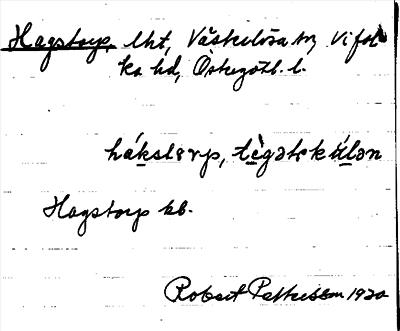 Hagstorp, lht, Västerlösa sn, Vifol
ka hd, Östergötl. l.
hákstərp,
Hagstorp kb.
Robert Pettersson 1920